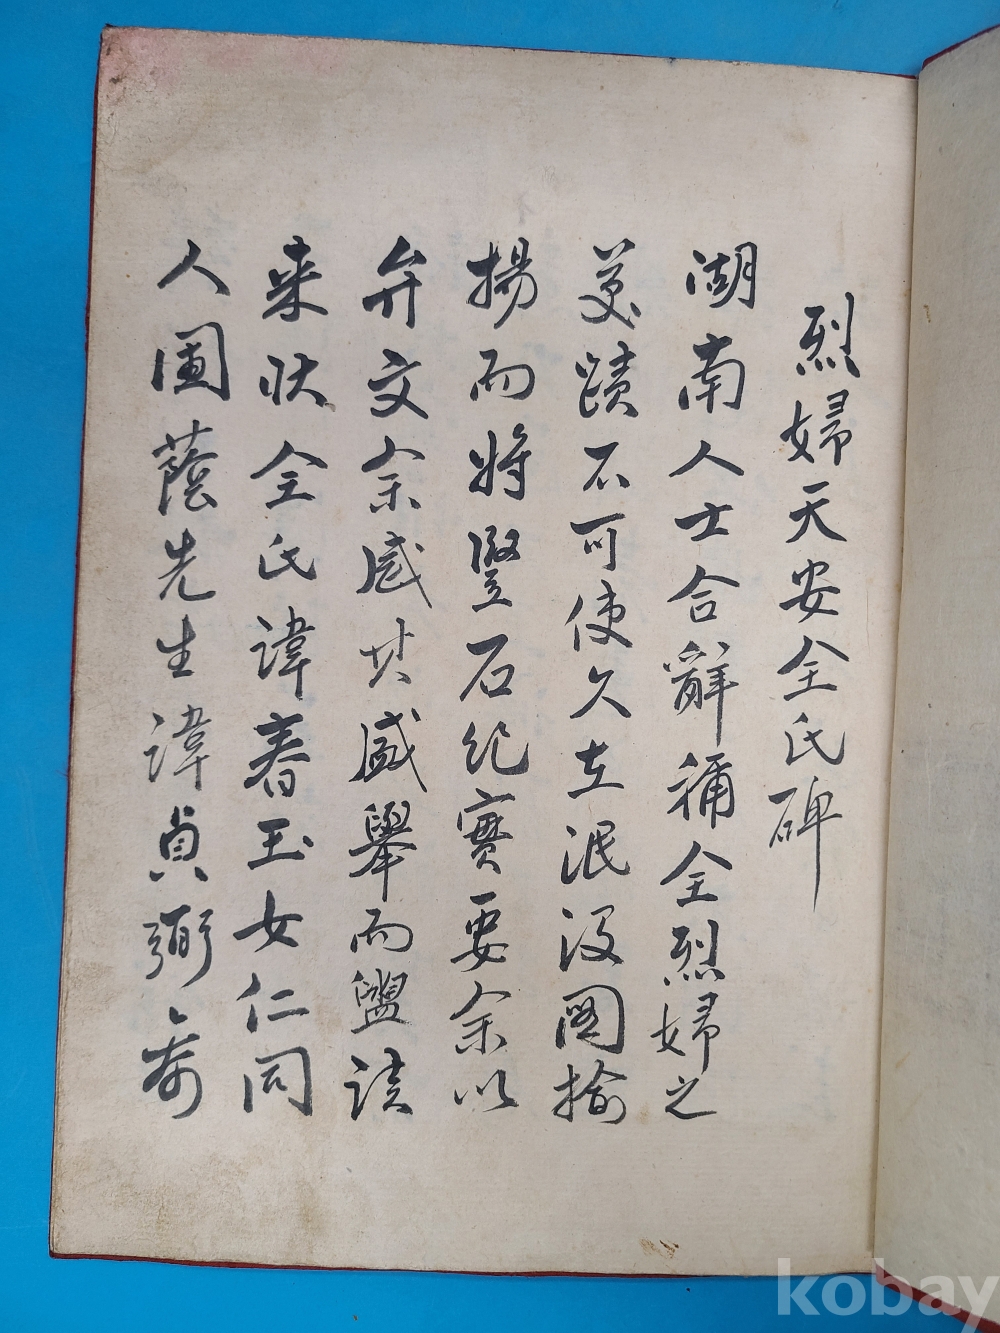 烈婦天安全氏碑
湖南人士合辭稱全烈婦之
美蹟不可使久在泯沒圖揄
揚而將竪石紀實要余以
弁文余感其盛舉而盥讀
來狀全氏諱春玉女仁同
人圃蔭先生諱貞弼
kobay